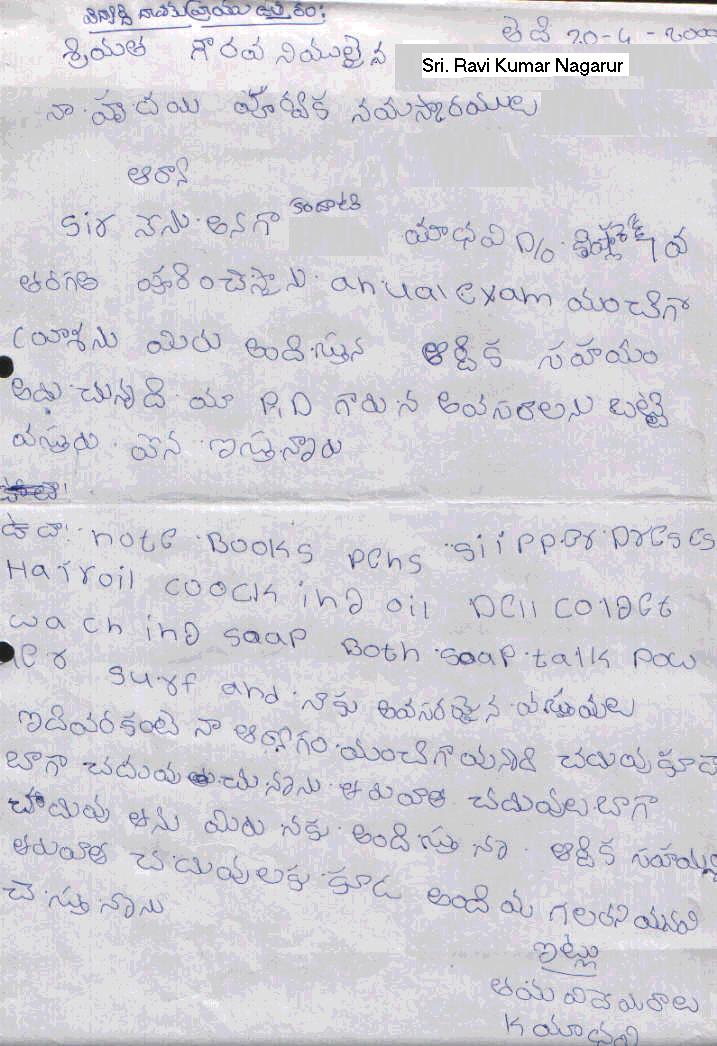 విద్యార్థి దాతకు వ్రాయు ఉత్తరం:
తేది 20-4-2000
శ్రీయుత గౌరవనియులైన Sri. Ravi Kumar Nagarur
నా హృదయ పూర్వక నమస్కారములు
ఆర్యా
Sir నేను అనగా కందాటి మాధవి D/o
తరగతి పూర్తి చేస్నాను. anual exam మంచిగా
వ్రాశను మిరు అందిస్తున ఆర్థిక సహాయం
అందు చున్నది మా P.D గారు న అవసరాలను బట్టి
వస్తురు పైన ఇస్తున్నారు
ఉదా: note Books pens Siipper Dreses
Hairoil coock ing oil Dell colget
wa ch ing Soap Both Soap talk Pow
der Surf and నాకు అవసరమైన వస్తువులు
ఇదివరకంటె నా ఆర్యోగం మంచిగా వున్నది చదువు కూడ
బాగా చదువుతుచునాను తరువాత చదువుల బాగా
చదువుతాను మిరు నకు అందిస్తునా ఆర్థిక సహయం
తరువాత చదువులకు కూడ అందివ్వగలరని మనవి
చేస్తునాను
ఇట్లు
తమ విదేయరాలు
K మాధవి